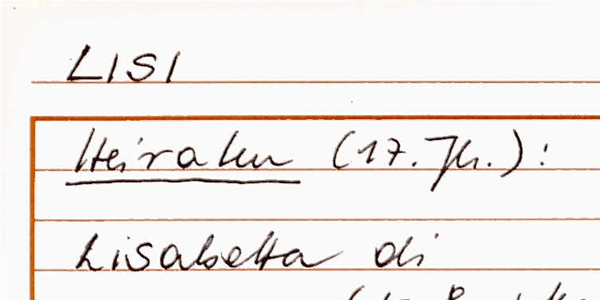 LISI
Heiraten (17. Jh.):
Lisabetta di